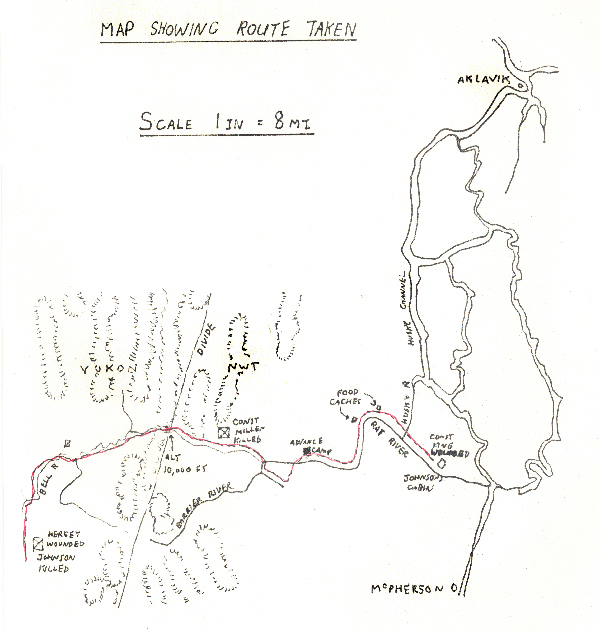 MAP SHOWING ROUTE TAKEN
SCALE 1 IN = 8 MI
AKLAVIK
HUSKY CHANNEL
DIVIDE
YUKON
NWT
HUSKY R
FOOD
CACHES
RAT RIVER
CONST
MILLEN
KILLED
ADVANCE
CAMP
CONST
KING
WOUNDED
ALT
10,000 FT
BELL R
BARRIER RIVER
JOHNSONS
CABIN
HERSEY
WOUNDED
JOHNSON
KILLED
MCPHERSON